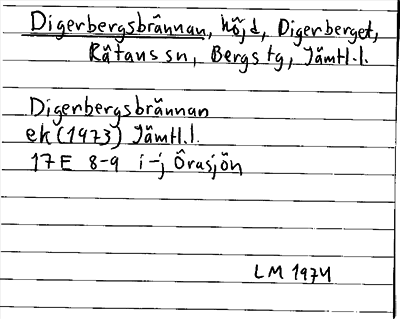 Digerbergsbrännan, höjd, Digerberget,
Rätans sn, Bergs tg, Jämtl.l.
Digerbergsbrännan
ek (1973) Jämtl.l.
17E 8-9 i-j Örasjön
LM 1974